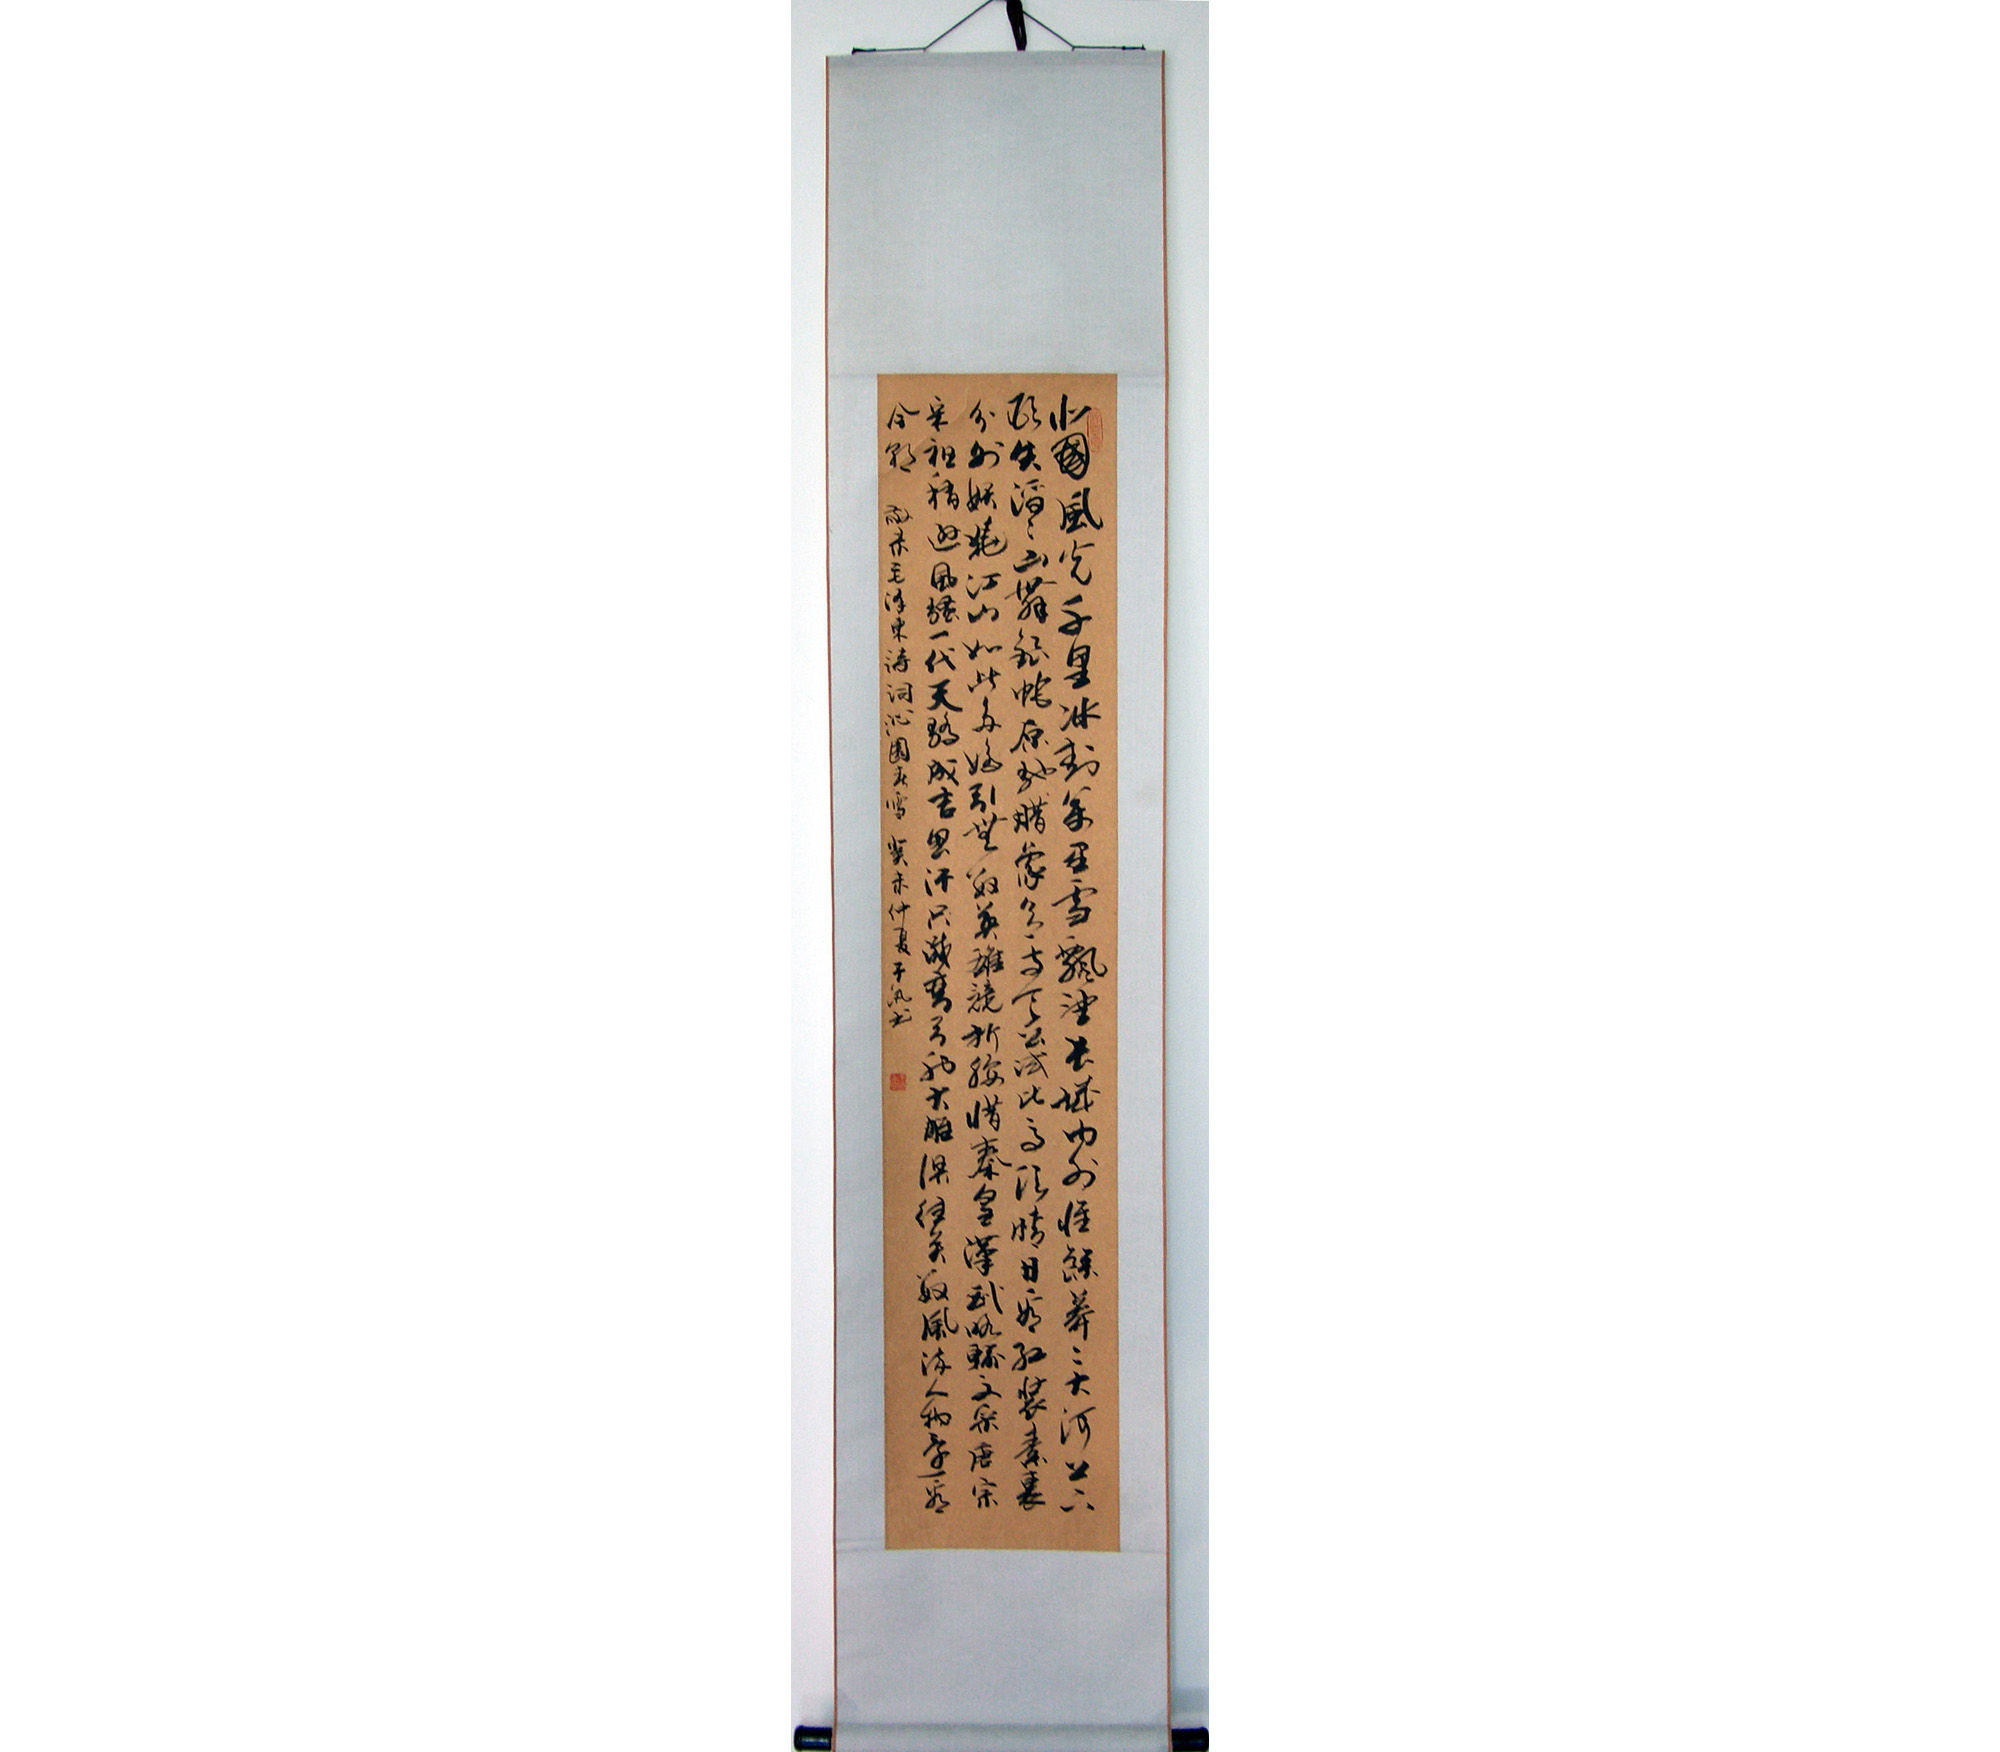 北國風光千里冰封萬里雪飄望長城內外惟餘莽〻大河上下
頓失滔〻山舞銀蛇原馳臘象欲与天公試比高須晴日看紅裝素裹
分外妖嬈江山如此多嬌引無數英雄競折腰惜秦皇漢武略輸文采唐宗
宋祖稍遜風騷一代天驕成吉思汗只識彎弓射大雕俱往矣數風流人物還看
今朝 敬录毛澤東詩詞沁園春雪 癸未仲夏